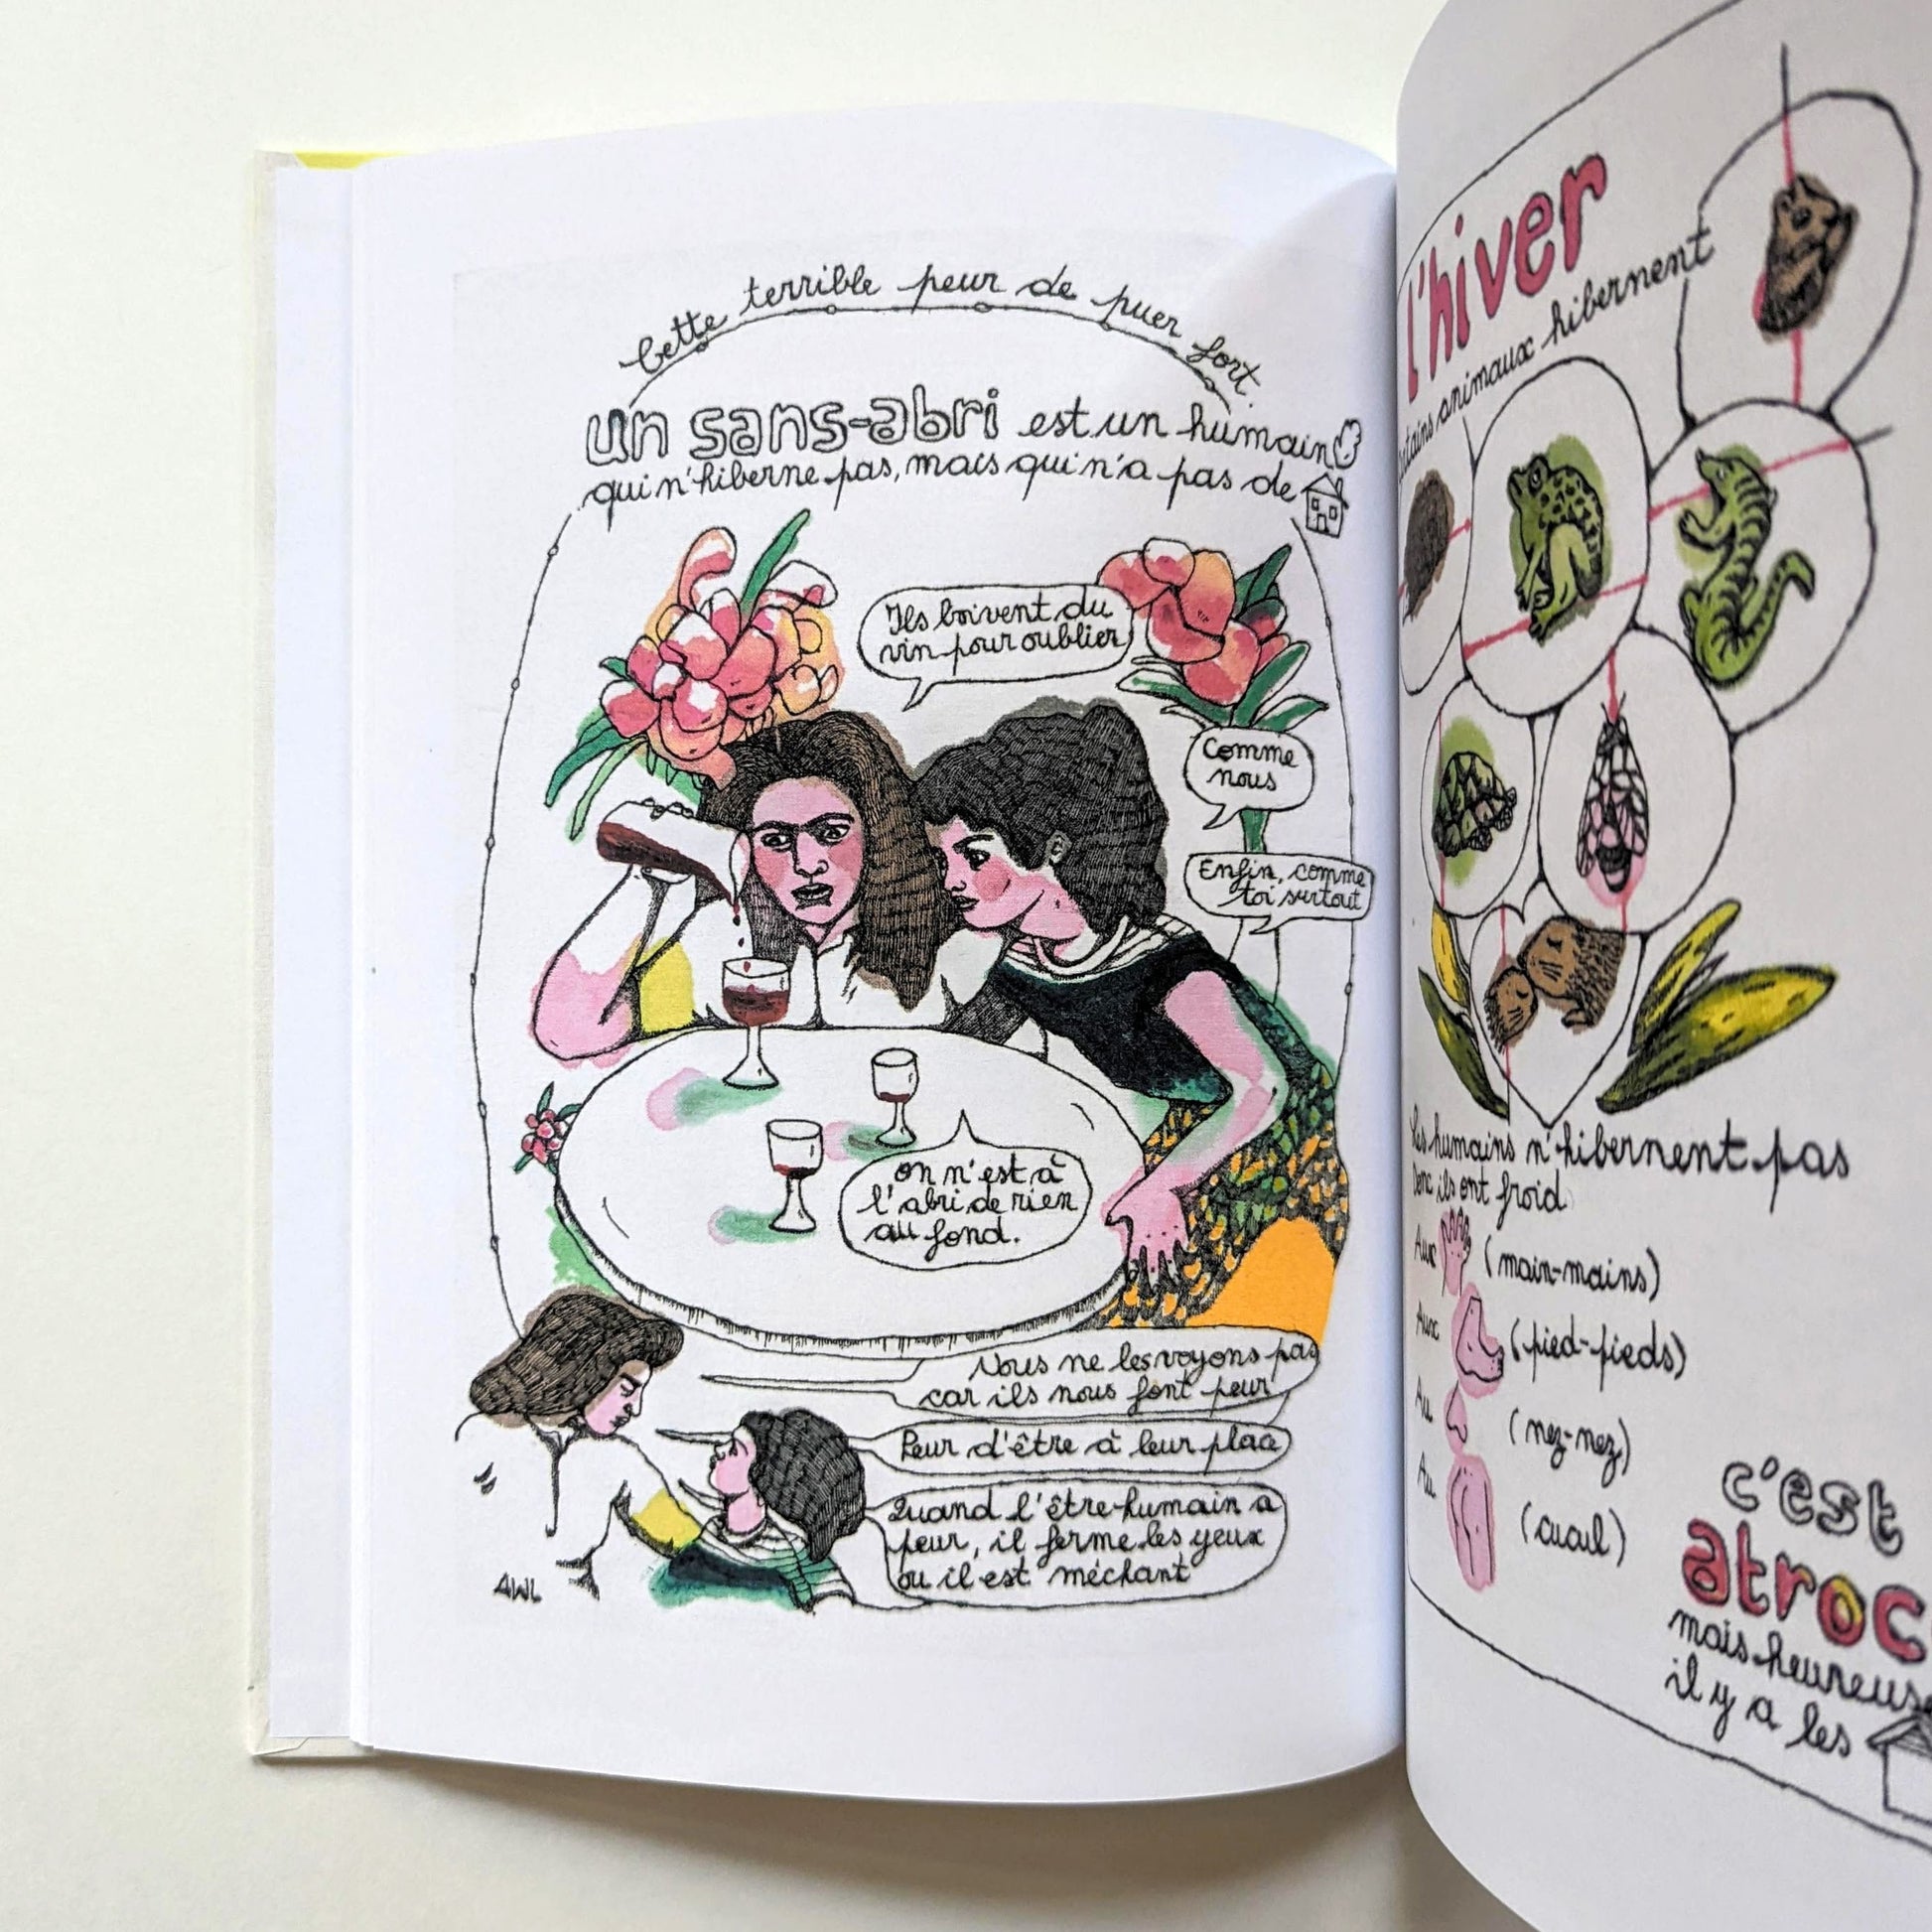 Cette terrible peur de puer fort.
un sans-abri est un humain
qui n'hiberne pas, mais qui n'a pas de
Ils boivent du
vin pour oublier
Comme
nous
Enfin, comme
toi surtout
on n'est à
l'abri de rien
au fond.
Nous ne les voyons pas
car ils nous font peur
Peur d'être à leur place
Quand l'être-humain a
peur, il ferme les yeux
ou il est méchant
AWL
l'hiver
animaux hibernent
Les humains n'hibernent pas
Donc ils ont froid
Aux (main-mains)
Aux (pied-pieds)
Au (nez-nez)
Au (cucul)
c'est
atroc
mais heureus
il y a les